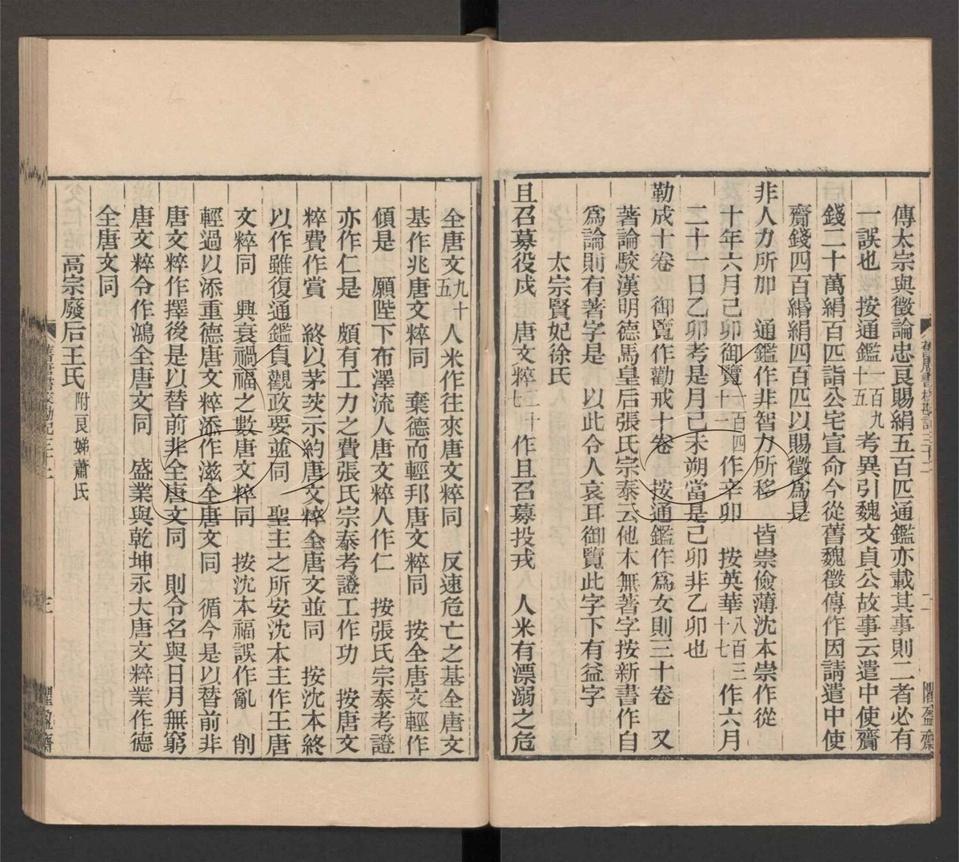 傳太宗與徵論忠良賜絹五百匹通鑑亦載其事則二者必有
一誤也　按通鑑一百九十五考異引魏文貞公故事云遣中使齎
錢二十萬絹百匹詣公宅宣命今從舊魏徵傳作因請遣中使
齎錢四百緡絹四百匹以賜徵爲是
非人力所加　通鑑作非智力所移　皆崇儉薄沈本崇作從
十年六月己卯御覽一百四十一作辛卯　按英華八百三十七作六月
二十一日乙卯考是月己未朔當是己卯非乙卯也
勒成十卷　御覽作勸戒十卷　按通鑑作爲女則三十卷　又
著論駮漢明德馬皇后張氏宗泰云他本無著字按新書作自
爲論則有著字是　以此令人哀耳御覽此字下有益字
太宗賢妃徐氏
且召募役戍　唐文粹二十七作且召募投戎　人米有漂溺之危
全唐文九十五人米作往來唐文粹同　反速危亡之基全唐文
基作兆唐文粹同　棄德而輕邦唐文粹同　按全唐文輕作
傾是　願陛下布澤流人唐文粹人作仁　按張氏宗泰考證
亦作仁是　頗有工力之費張氏宗泰考證工作功　按唐文
粹費作賞　終以茅茨示約唐文粹全唐文並同　按沈本終
以作雖復通鑑貞觀政要並同　聖主之所安沈本主作王唐
文粹同　興衰禍福之數唐文粹同　按沈本福誤作亂　削
輕過以添重德唐文粹添作滋全唐文同　循今是以替前非
唐文粹作擇後是以替前非全唐文同　則令名與日月無窮
唐文粹令作鴻全唐文同　盛業與乾坤永大唐文粹業作德
全唐文同
高宗廢后王氏附良娣蕭氏